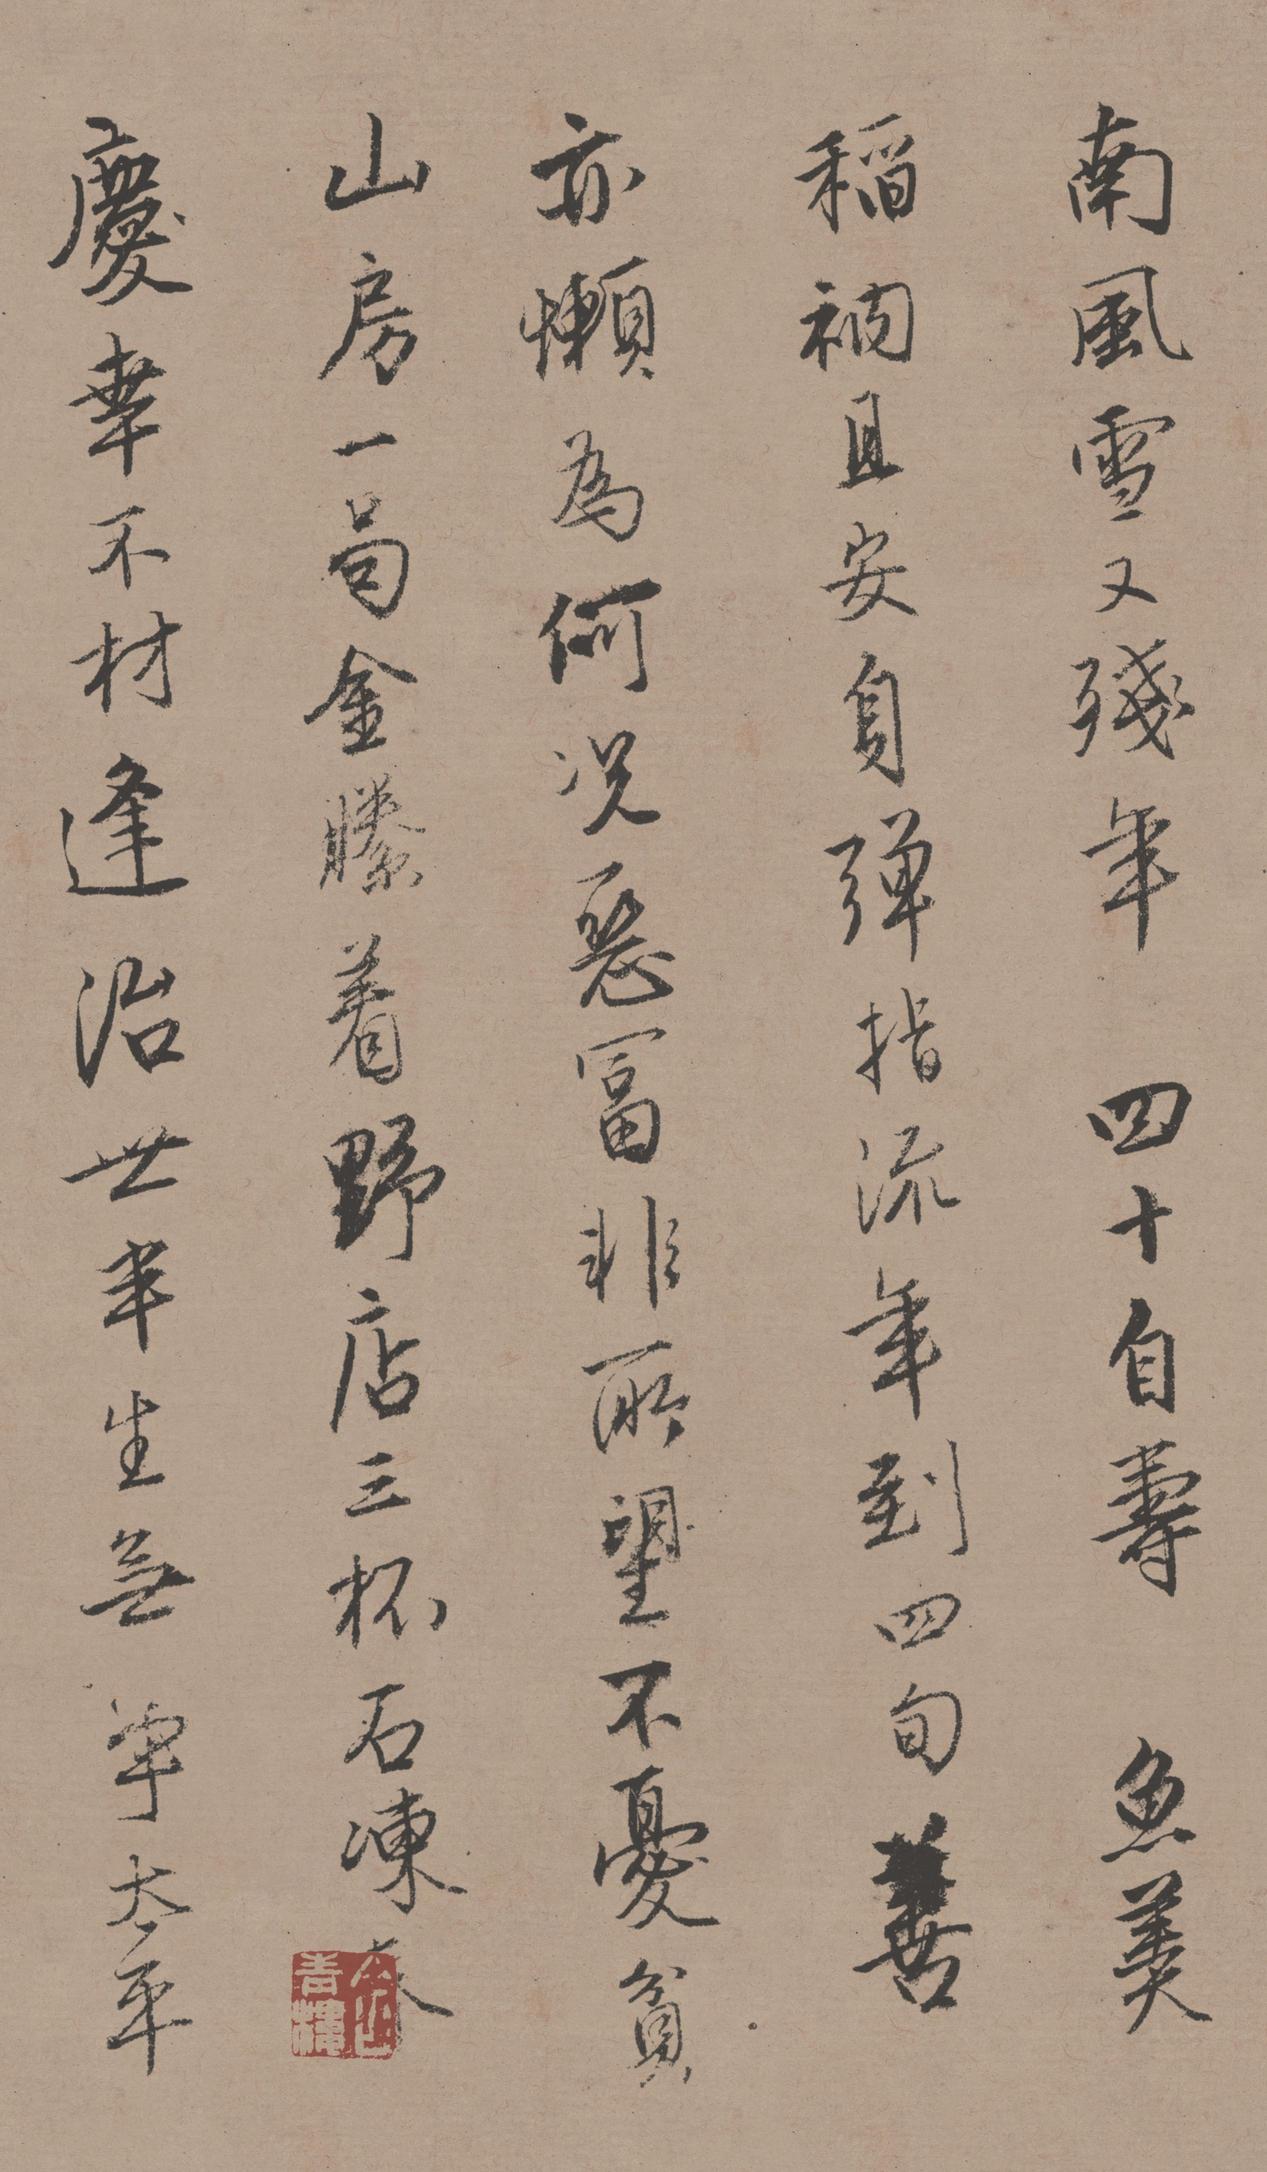 南風雪又殘年 四十自壽 魚羹
稻衲且安身彈指流年到四旬善
亦懶為何況惡富非所望不憂貧
山房一局金縢着野店三杯石凍春
慶幸不材逢治世半生無事太平